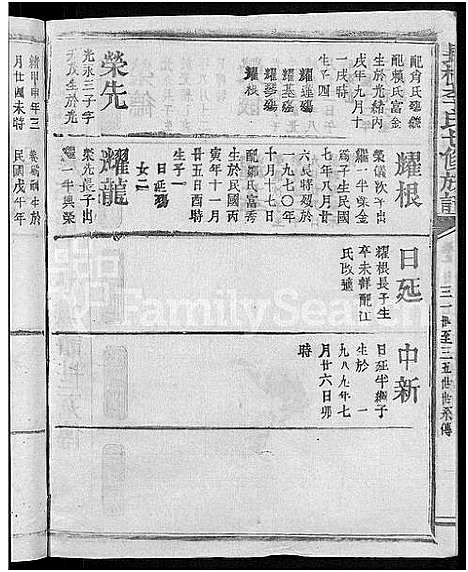 李氏七修族譜
三一世至三五世世系傳
生於光緒丙
戌年九月十
一戌時
生子四
耀蓮殤
耀基殤
耀琴殤
耀根
耀根
榮儀次子出
繼一半榮金
為子生民國
七年八月廿
六長時歿於
一九七〇年
十月十七日
配鄒氏富秀
生於民國丙
寅年十一月
廿五日酉時
生子一
日延
女二
日延
耀根長子生
卒未詳配江
氏改適
中新
日延半繼子
生於一
九八九年七
月廿六日卯
時
榮先
光永三子字
生於光
緒甲申年三
月廿四未時
耀龍
榮先長子出
繼一半與榮
生於
民國戊午年
FamilySearch